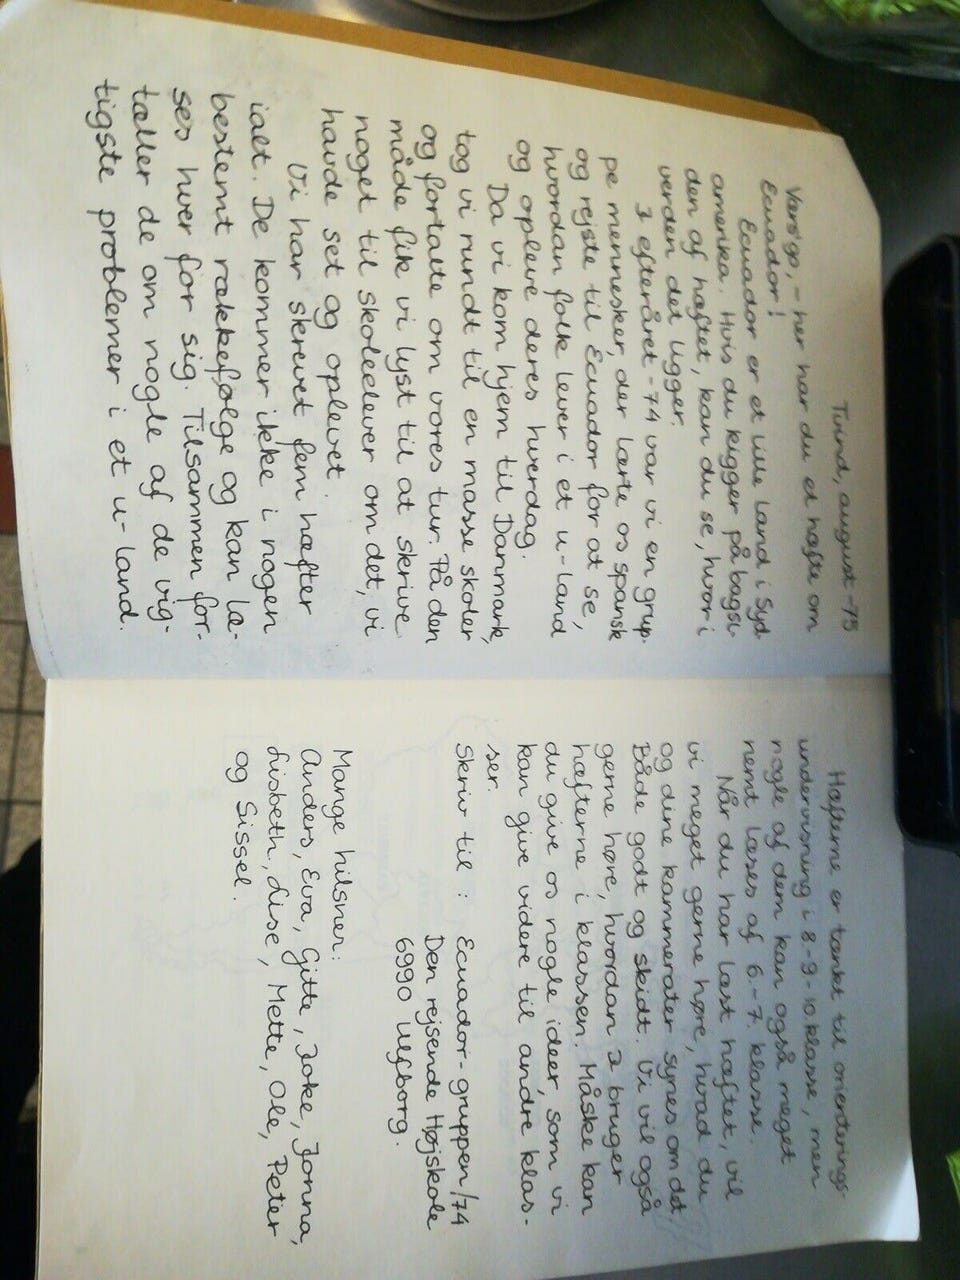 Tvind, august -75
Værs'go, - her har du et hæfte om
Ecuador!
Ecuador er et lille land i Syd
amerika. Hvis du kigger på bagsi-
den af hæftet, kan du se, hvor i
verden det ligger.
I efteråret -74 var vi en grup-
pe mennesker, der lærte os spansk
og rejste til Ecuador for at se,
hvordan folk lever i et u-land
og opleve deres hverdag.
Da vi kom hjem til Danmark,
tog vi rundt til en masse skoler
og fortalte om vores tur. På den
måde fik vi lyst til at skrive
noget til skoleelever om det, vi
havde set og oplevet.
Vi har skrevet fem hæfter
ialt. De kommer ikke i nogen
bestemt rækkefølge og kan læ-
ses hver for sig. Tilsammen for-
tæller de om nogle af de vig-
tigste problemer i et u-land.
Hæfterne er tænkt til orienterings-
undervisning i 8-9-10.klasse, men
nogle af dem kan også meget
nemt læses af 6.-7. klasse.
Når du har læst hæftet, vil
vi meget gerne høre, hvad du
og dine kammerater synes om det,
Både godt og skidt. Vi vil også
gerne høre, hvordan I bruger
hæfterne i klassen. Måske kan
du give os nogle ideer, som vi
kan give videre til andre klas-
ser.
Skriv til : Ecuador-gruppen/74
Den rejsende Højskole
6990 Ulfborg.
Mange hilsner:
Anders, Eva, Gitte, Joke, Jonna,
Lisbeth, Lise, Mette, Ole, Peter
og Sissel.